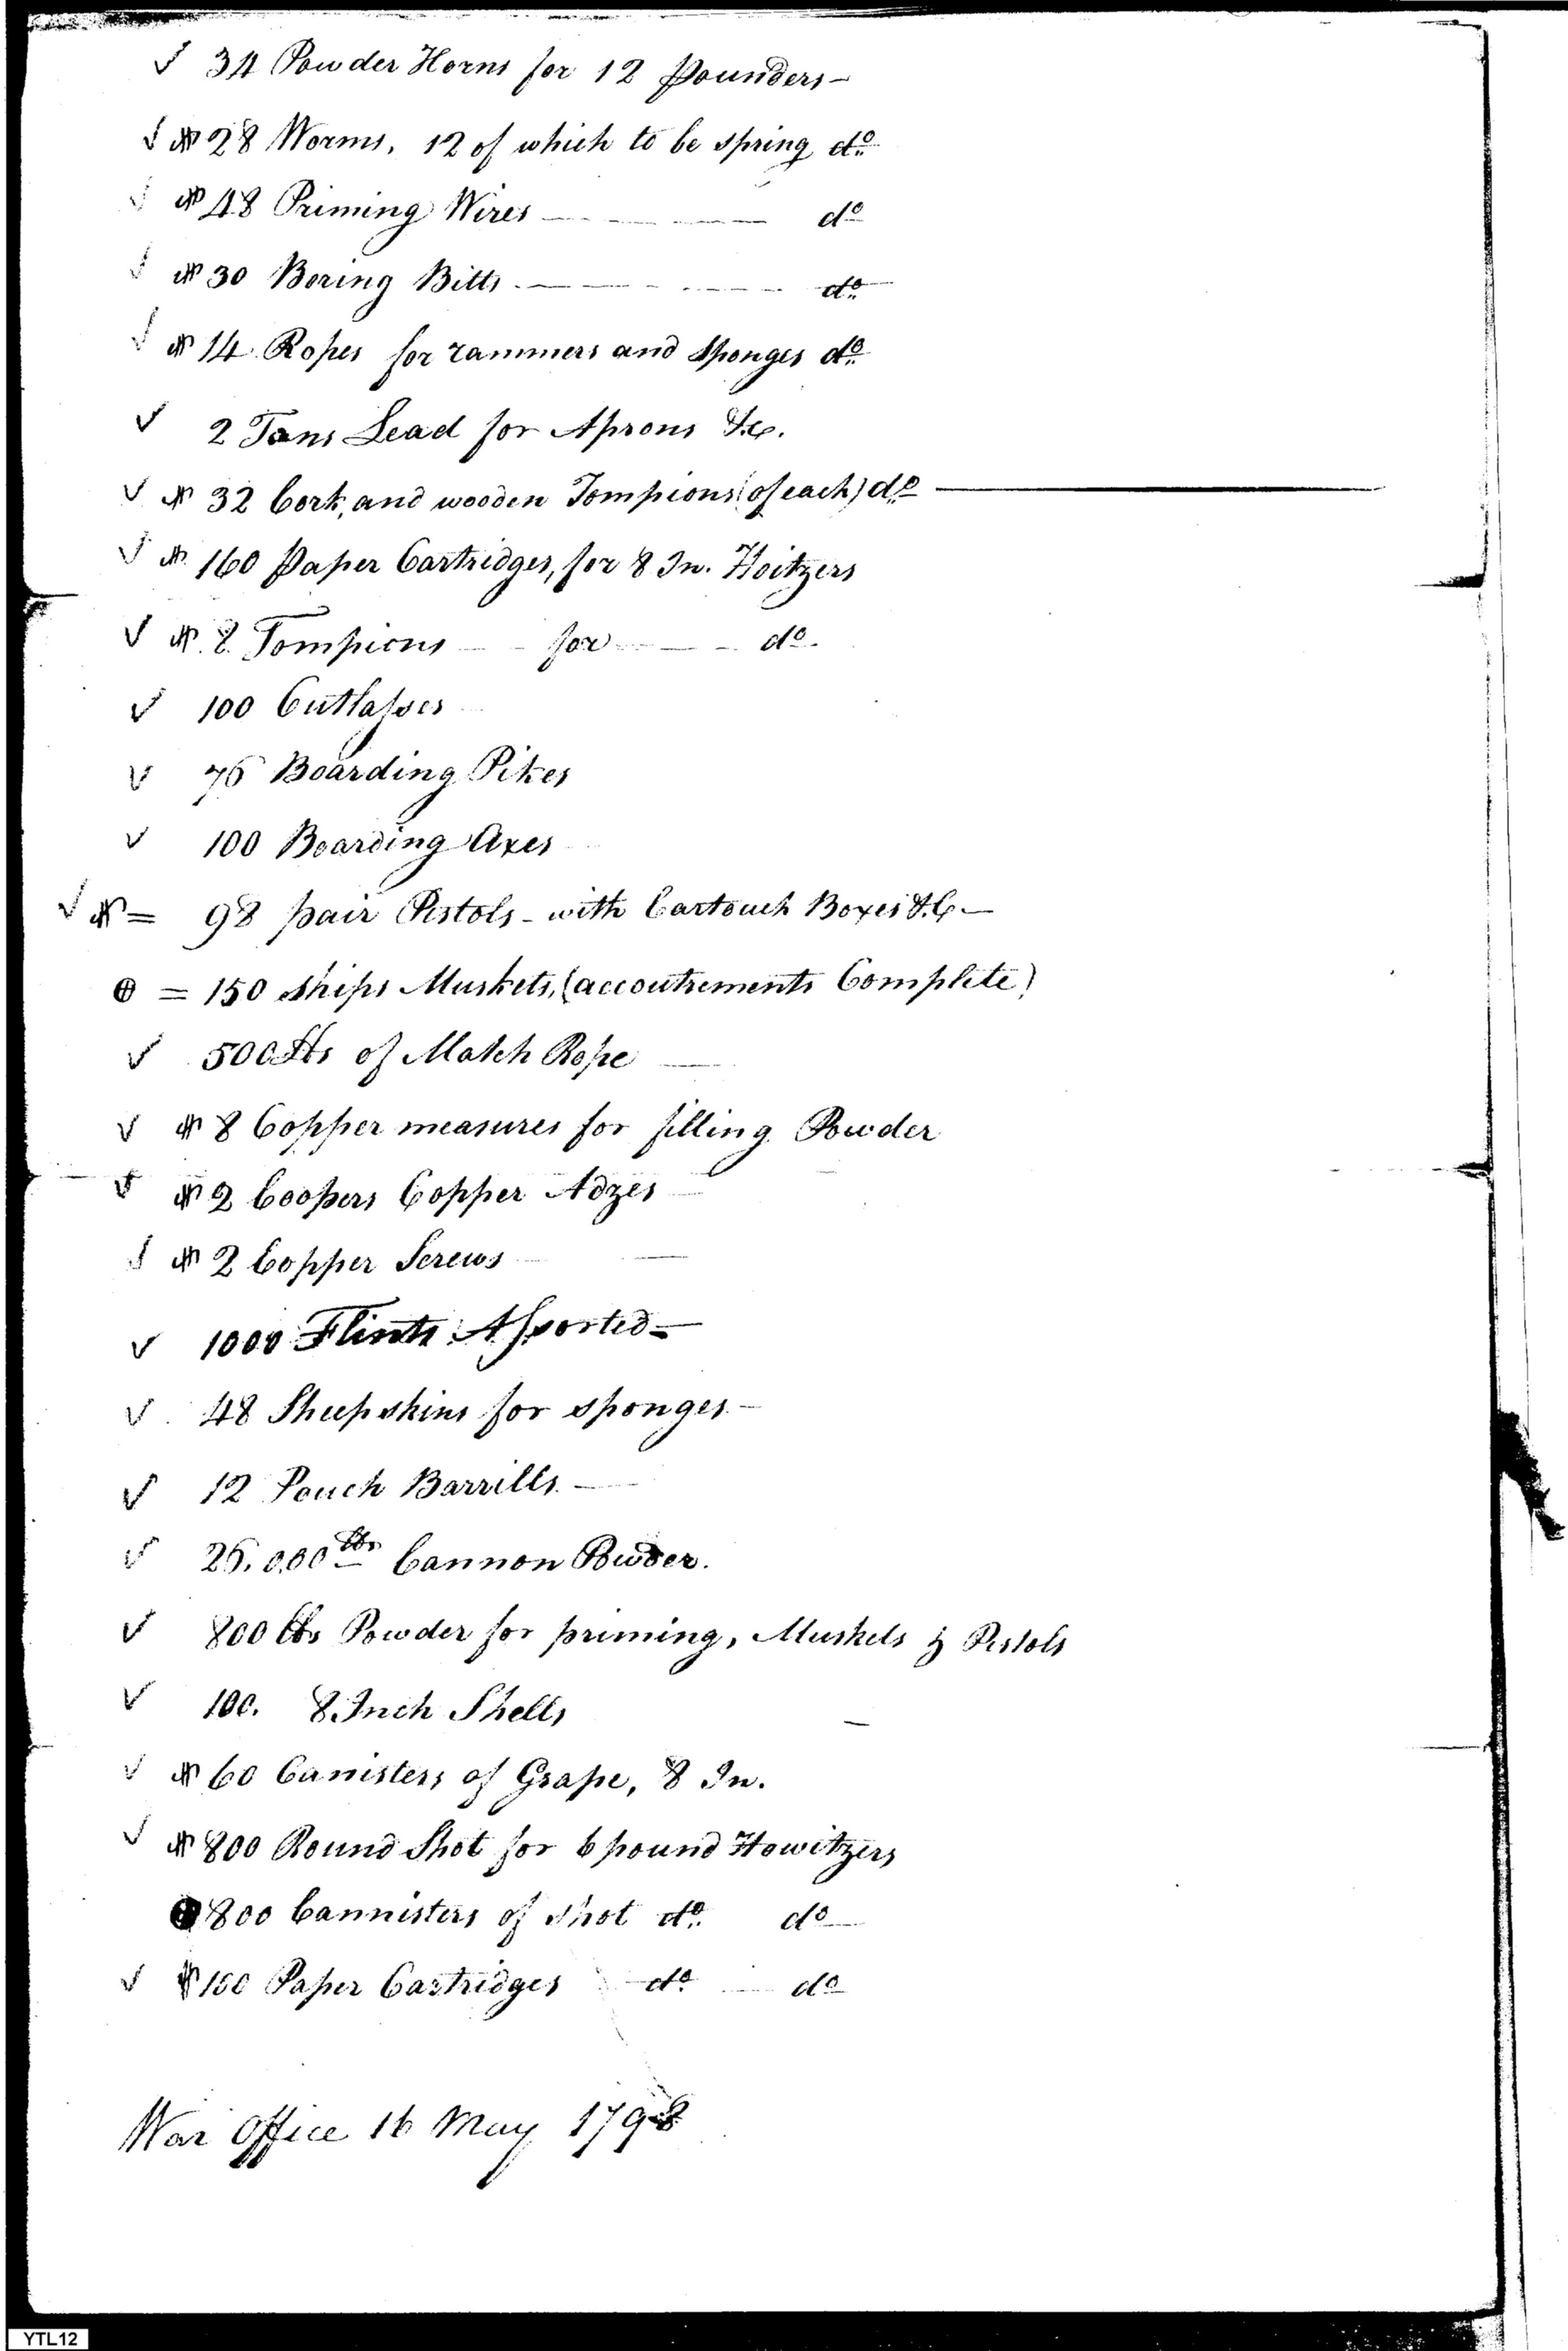 ✓ 34 Powder Horns for 12 Pounders –
✓ # 28 Worms, 12 of which to be spring do
✓ # 48 Priming Wires — do
✓ # 30 Boring Bitts — do
✓ # 14 Ropes for rammers and sponges do
✓ 2 Tons Lead for Aprons &c.
✓ # 32 Cork, and wooden Tompions (of each) do —
✓ # 160 Paper Cartridges, for 8 In. Hoitzers
✓ # 8 Tompions — for — do
✓ 100 Cutlasses
✓ 76 Boarding Pikes
✓ 100 Boarding Axes
✓ # = 98 pair Pistols – with Cartouch Boxes &C —
⊕ = 150 Ships Muskets, (accoutrements Complete)
✓ 500 lbs of Match Rope
✓ # 8 Copper measures for filling Powder
✓ # 2 Coopers Copper Adzes
✓ # 2 Copper Screws
✓ 1000 Flints Assorted –
✓ 48 Sheepskins for sponges –
✓ 12 Pouch Barrills —
✓ 25,000 lbs Cannon Powder.
✓ 800 lbs Powder for priming, Muskets & Pistols
✓ 100. 8 Inch Shells
✓ # 60 Canisters of Grape, 8 In.
✓ # 800 Round Shot for 6 pound Howitzers
800 Cannisters of shot do. do
✓ # 160 Paper Cartridges do. do
War Office 16 May 1798
YTL12